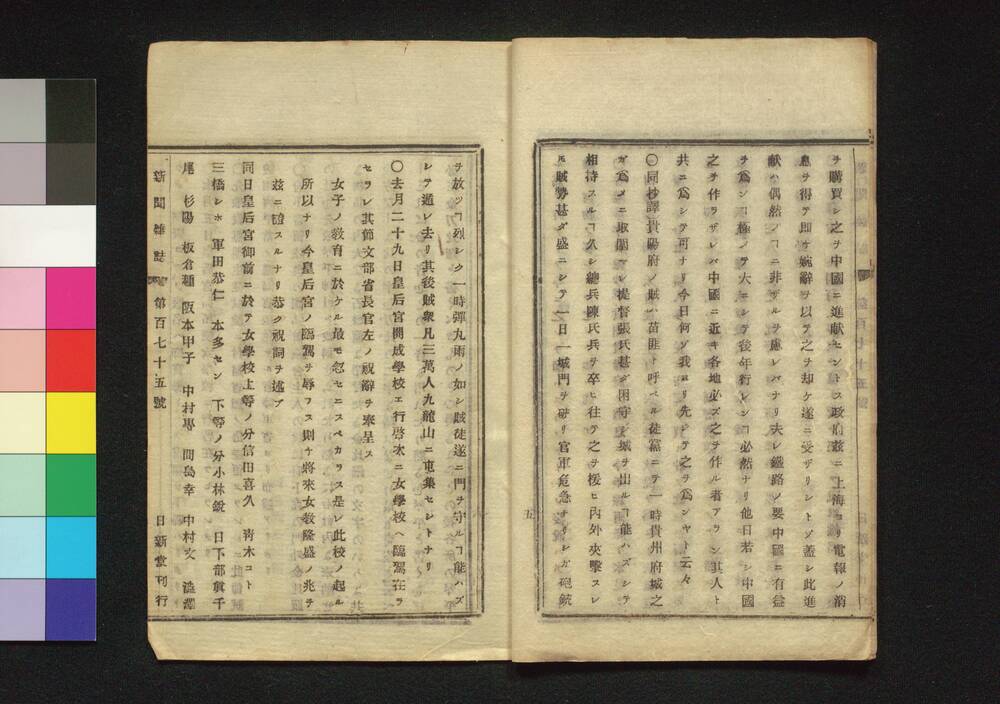 ヲ購買シ之ヲ中國ニ進献セントス政府玆ニ上海ヨリ電報ノ消
息ヲ得テ即チ婉辭ヲ以テ之ヲ却ケ遂ニ受ザリシトゾ蓋シ此進
献ハ偶然ノヿニ非ザルヲ慮レバナリ夫レ鐵路ノ要中國ニ有益
ヲ爲シヿ極メテ大ニシテ後年行レンヿ必然ナリ他日若シ中國
之ヲ作ラザレバ中國ニ近キ各地必ズ之ヲ作ル者アラン其人ト
共ニ爲シテ可ナリ今日何ゾ我ヨリ先ンジテ之ヲ爲シヤト云々
〇同抄譯貴陽府ノ賊ハ苗匪ト呼ベル徒黨ニテ一時貴州府城之
ガ爲メニ取圍マレ提督張氏甚ダ困守シ城ヲ出ルヿ能ハズシテ
相待スルヿ久シ總兵陳氏兵ヲ卒ヒ往テ之ヲ援ヒ内外夾撃スレ
𪜈賊勢甚ダ盛ニシテ一日一城門ヲ破リ官軍危急ナリシガ砲銃
五
ヲ放ツヿ烈シク一時彈丸雨ノ如シ賊徒遂ニ門ヲ守ルヿ能ハズ
シテ遁レ去リ其後賊衆凡三萬人九龍山ニ屯集セシトナリ
〇去月二十九日皇后宮開成學校エ行啓次ニ女學校ヘ臨駕在ラ
セラレ其節文部省長官左ノ祝辭ヲ奏呈ス
女子ノ敎育ニ於ケル最モ忽セニスベカラス是レ此校ノ起ル
所以ナリ今皇后宮ノ臨駕ヲ辱フス則チ將來女敎隆盛ノ兆ヲ
玆ニ證スルナリ恭ク祝詞ヲ述ブ
同日皇后宮御前ニ於テ女學校上等ノ分信田喜久 靑木コト
三橋レホ 軍田恭仁 本多セン 下等ノ分小林鋭 日下部眞千
尾 杉陽 板倉種 阪本甲子 中村專 間島幸 中村文 澁澤
新聞雜誌 第百七十五號 日新堂刊行